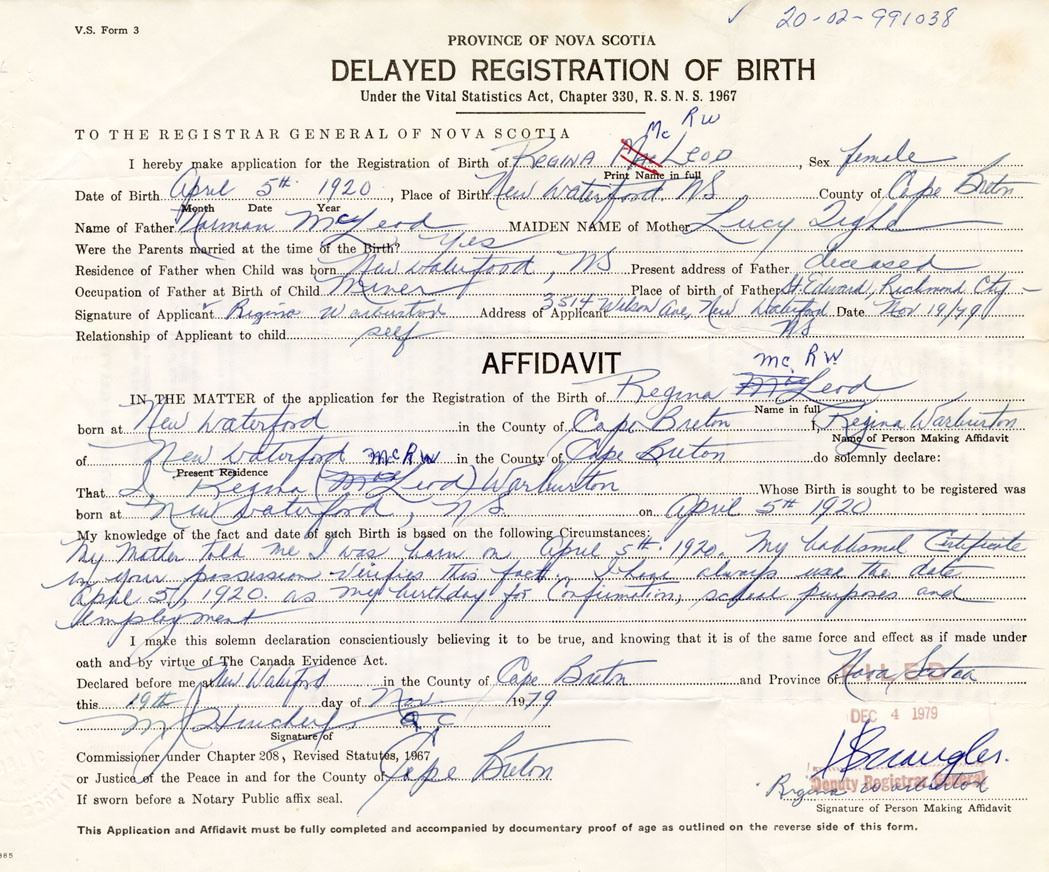 V.S. Form 3
✓ 20-02-991038
PROVINCE OF NOVA SCOTIA
DELAYED REGISTRATION OF BIRTH
Under the Vital Statistics Act, Chapter 330, R. S. N. S. 1967
Mc RW
TO THE REGISTRAR GENERAL OF NOVA SCOTIA
I hereby make application for the Registration of Birth of REGINA Mac LEOD, Sex female
Print Name in full
Date of Birth April 5th 1920, Place of Birth New Waterford. NS County of Cape Breton
Month Date Year
Name of Father Norman McLeod MAIDEN NAME of Mother Lucy Tighe
Were the Parents married at the time of the Birth? Yes
Residence of Father when Child was born New Waterford, NS Present address of Father deceased
Occupation of Father at Birth of Child Miner Place of birth of Father St. Edward, Richmond Cty -
Signature of Applicant Regina Warburton Address of Applicant 3514 Wilson Ave, New Waterford Date Nov 19/79
NS
Relationship of Applicant to child self
AFFIDAVIT
mc RW
IN THE MATTER of the application for the Registration of the Birth of Regina Leod
Name in full
born at New Waterford in the County of Cape Breton I, Regina Warburton
Name of Person Making Affidavit
of New Waterford mc RW in the County of Cape Breton do solemnly declare:
Present Residence
That I, Regina (Leod) Warburton Whose Birth is sought to be registered was
born at New Waterford, NS on April 5th 1920
My knowledge of the fact and date of such Birth is based on the following Circumstances:
My Mother told me I was born on April 5th 1920. My babtismal Certificate
in your possession verifies this fact. I have always use the date
April 5, 1920. as my birthday for Confirmation, school purposes and
Employment
I make this solemn declaration conscientiously believing it to be true, and knowing that it is of the same force and effect as if made under
oath and by virtue of The Canada Evidence Act.
Declared before me at New Waterford in the County of Cape Breton and Province of Nova Scotia
FILED
this 19th day of Nov 1979
DEC 4 1979
QC
Signature of
Commissioner under Chapter 208, Revised Statutes, 1967
or Justice of the Peace in and for the County of Cape Breton
Deputy Registrar General
Regina Warburton
If sworn before a Notary Public affix seal.
Signature of Person Making Affidavit
This Application and Affidavit must be fully completed and accompanied by documentary proof of age as outlined on the reverse side of this form.
885